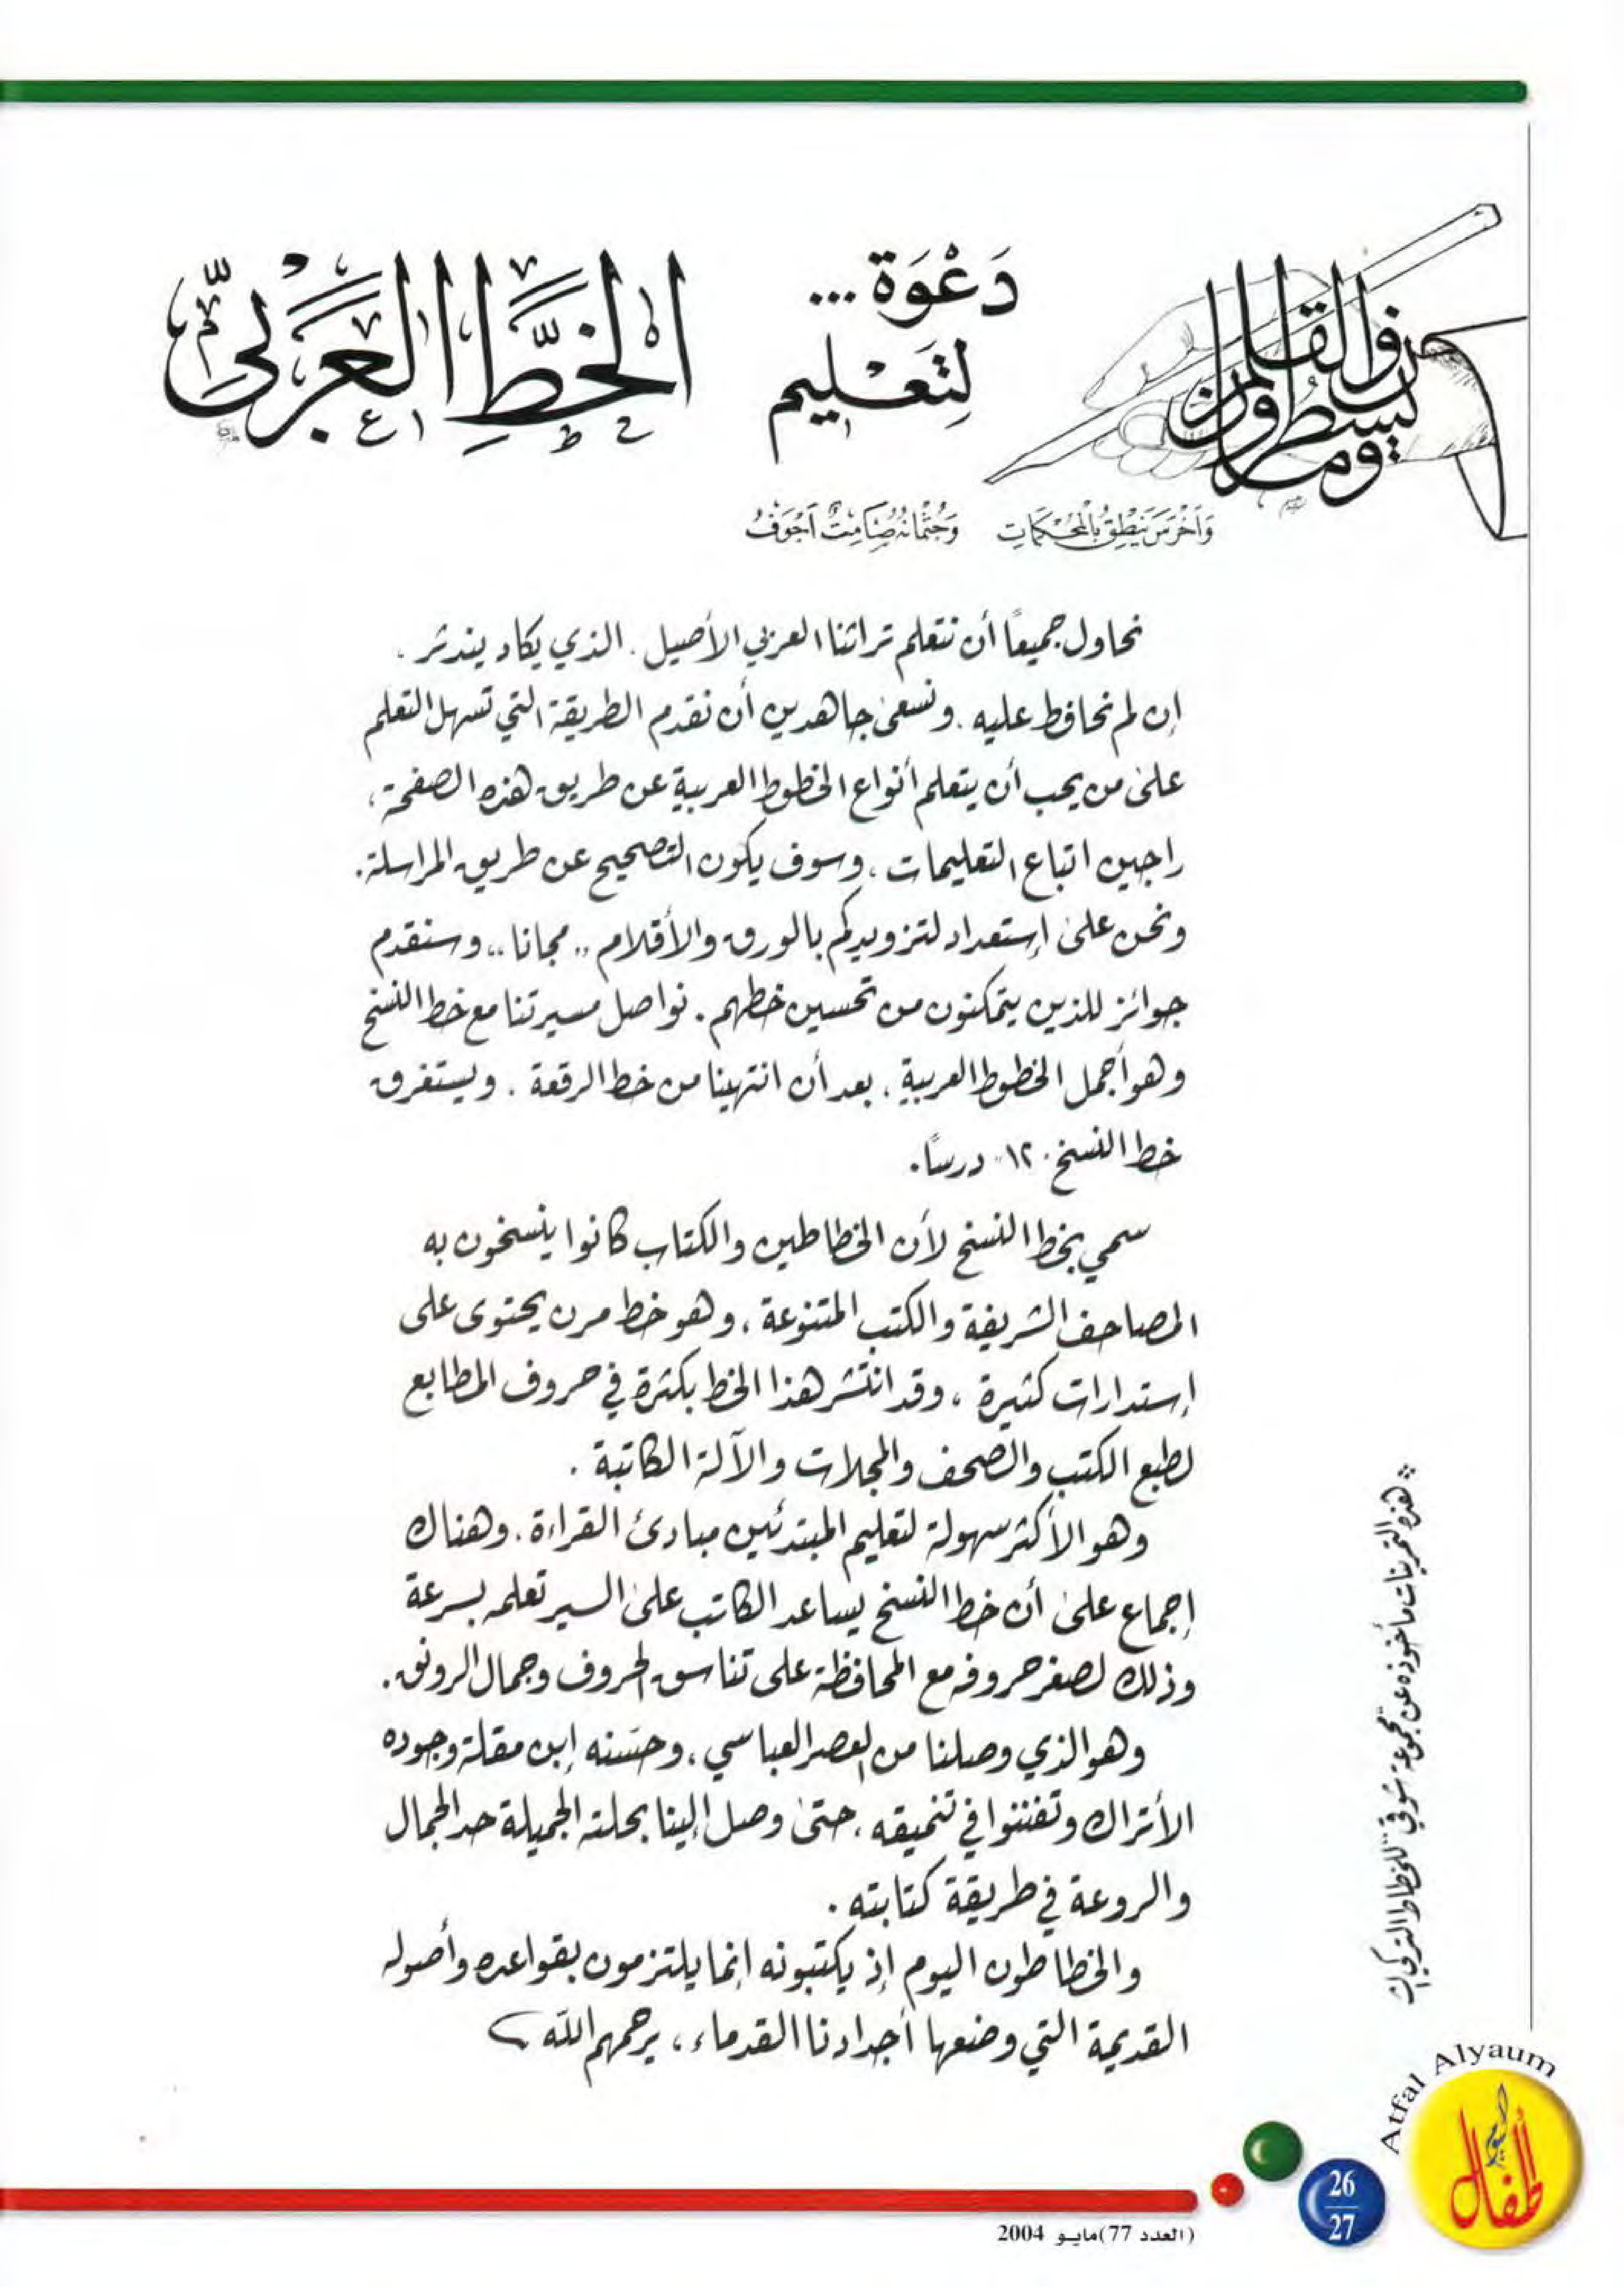 ن والقلم وما يسطرون
دَعْوَة...
لِتَعْليم
الخَطِّ العَرَبيّ
وَأَخْرَسَ يَنْطِقُ بِالْمُحْكَمَاتِ وَجُثْمَانُهُ صَامِتٌ أَجْوَفُ
نحاول جميعًا أن نتعلم تراثنا العربي الأصيل. الذي يكاد يندثر.
إن لم نحافظ عليه. ونسعى جاهدين أن نقدم الطريقة التي تسهل التعلم
على من يحب أن يتعلم أنواع الخطوط العربية عن طريق هذه الصفحة،
راجين اتباع التعليمات، وسوف يكون التصحيح عن طريق المراسلة.
ونحن على إستعداد لتزويدكم بالورق والأقلام "مجانا"، وسنقدم
جوائز للذين يتمكنون من تحسين خطهم. نواصل مسيرتنا مع خط النسخ
وهو أجمل الخطوط العربية. بعد أن انتهينا من خط الرقعة. ويستغرق
خط النسخ "١٢" درسًا.
سمي بخط النسخ لأن الخطاطين والكتاب كانوا ينسخون به
المصاحف الشريفة والكتب المتنوعة، وهو خط مرن يحتوى على
إستدارات كثيرة، وقد انتشر هذا الخط بكثرة في حروف المطابع
لطبع الكتب والصحف والمجلات والآلة الكاتبة.
وهو الأكثر سهولة لتعليم المبتدئين مبادئ القراءة. وهناك
إجماع على أن خط النسخ يساعد الكاتب على السير تعلمه بسرعة
وذلك لصغر حروفه مع المحافظة على تناسق الحروف وجمال الرونق.
وهو الذي وصلنا من العصر العباسي، وحسّنه إبن مقلة وجوده
الأتراك وتفننوا في تنميقه، حتى وصل إلينا بحلته الجميلة حد الجمال
والروعة في طريقة كتابته.
والخطاطون اليوم إذ يكتبونه إنما يلتزمون بقواعده وأصوله
القديمة التي وضعها أجدادنا القدماء، يرحمهم الله
* هذه التمرينات مأخوذه عن "مجموعة شوقي" للخطاط التركي
Atfal Alyaum
أطفال اليوم
26
27
(العدد 77) مايو 2004